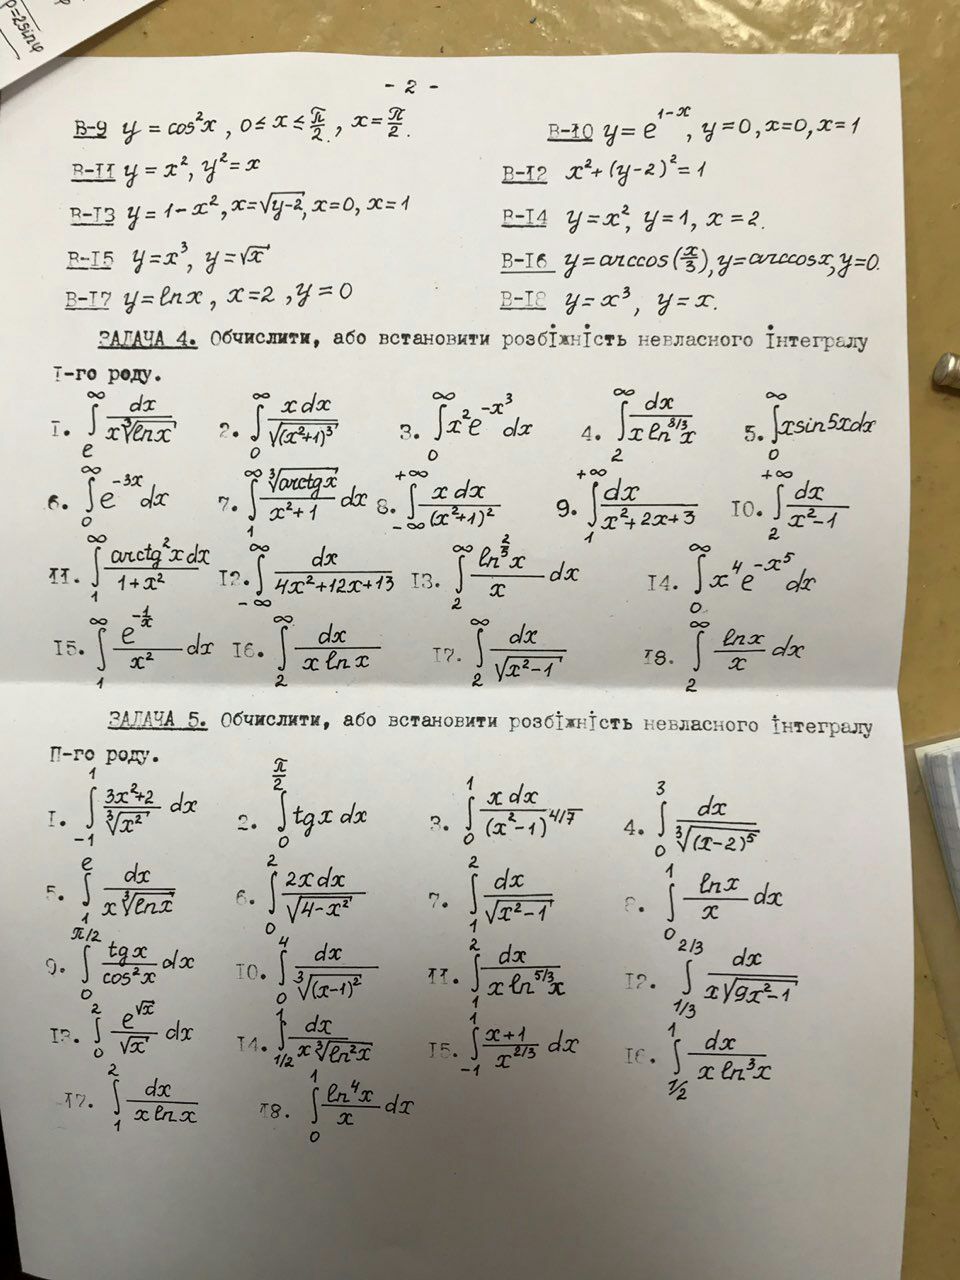 ρ=2sinφ
- 2 -
В-9 y = cos²x , 0 ≤ x ≤ π/2 , x = π/2.
В-10 y = e^(1-x), y=0, x=0, x=1
В-11 y = x², y² = x
В-12 x² + (y-2)² = 1
В-13 y = 1-x², x=√(y-2), x=0, x=1
В-14 y=x², y=1, x=2.
В-15 y=x³, y=√x
В-16 y=arccos(x/3), y=arccosx, y=0.
В-17 y=lnx, x=2, y=0
В-18 y=x³, y=x.
ЗАДАЧА 4. Обчислити, або встановити розбіжність невласного інтегралу
І-го роду.
1. ∫_e^∞ dx/(x∛(lnx)) 2. ∫_0^∞ xdx/√((x²+1)³) 3. ∫_0^∞ x²e^(-x³)dx 4. ∫_2^∞ dx/(x ln^(3/3)x) 5. ∫_0^∞ xsin5xdx
6. ∫_0^∞ e^(-3x)dx 7. ∫_1^∞ ∛(arctgx)/(x²+1) dx 8. ∫_(-∞)^(+∞) xdx/(x²+1)² 9. ∫_1^(+∞) dx/(x²+2x+3) 10. ∫_2^(+∞) dx/(x²-1)
11. ∫_1^∞ arctg²xdx/(1+x²) 12. ∫_(-∞)^∞ dx/(4x²+12x+13) 13. ∫_2^∞ ln^(2/3)x/x dx 14. ∫_0^∞ x⁴e^(-x⁵)dx
15. ∫_1^∞ e^(-1/x)/x² dx 16. ∫_2^∞ dx/(x lnx) 17. ∫_2^∞ dx/√(x²-1) 18. ∫_2^∞ lnx/x dx
ЗАДАЧА 5. Обчислити, або встановити розбіжність невласного інтегралу
П-го роду.
1. ∫_(-1)^1 (3x²+2)/∛(x²) dx 2. ∫_0^(π/2) tgxdx 3. ∫_0^1 xdx/(x²-1)^(4/7) 4. ∫_0^3 dx/∛((x-2)⁵)
5. ∫_1^e dx/(x∛(lnx)) 6. ∫_0^2 2xdx/√(4-x²) 7. ∫_1^2 dx/√(x²-1) 8. ∫_0^1 lnx/x dx
9. ∫_0^(π/2) tgx/cos²x dx 10. ∫_0^4 dx/∛((x-1)²) 11. ∫_1^2 dx/(x ln^(5/3)x) 12. ∫_(1/3)^(2/3) dx/(x√(9x²-1))
13. ∫_0^2 e^(√x)/√x dx 14. ∫_(1/2)^1 dx/(x∛(ln²x)) 15. ∫_(-1)^1 (x+1)/x^(2/3) dx 16. ∫_(1/2)^1 dx/(x ln³x)
17. ∫_1^2 dx/(x lnx) 18. ∫_0^1 ln⁴x/x dx